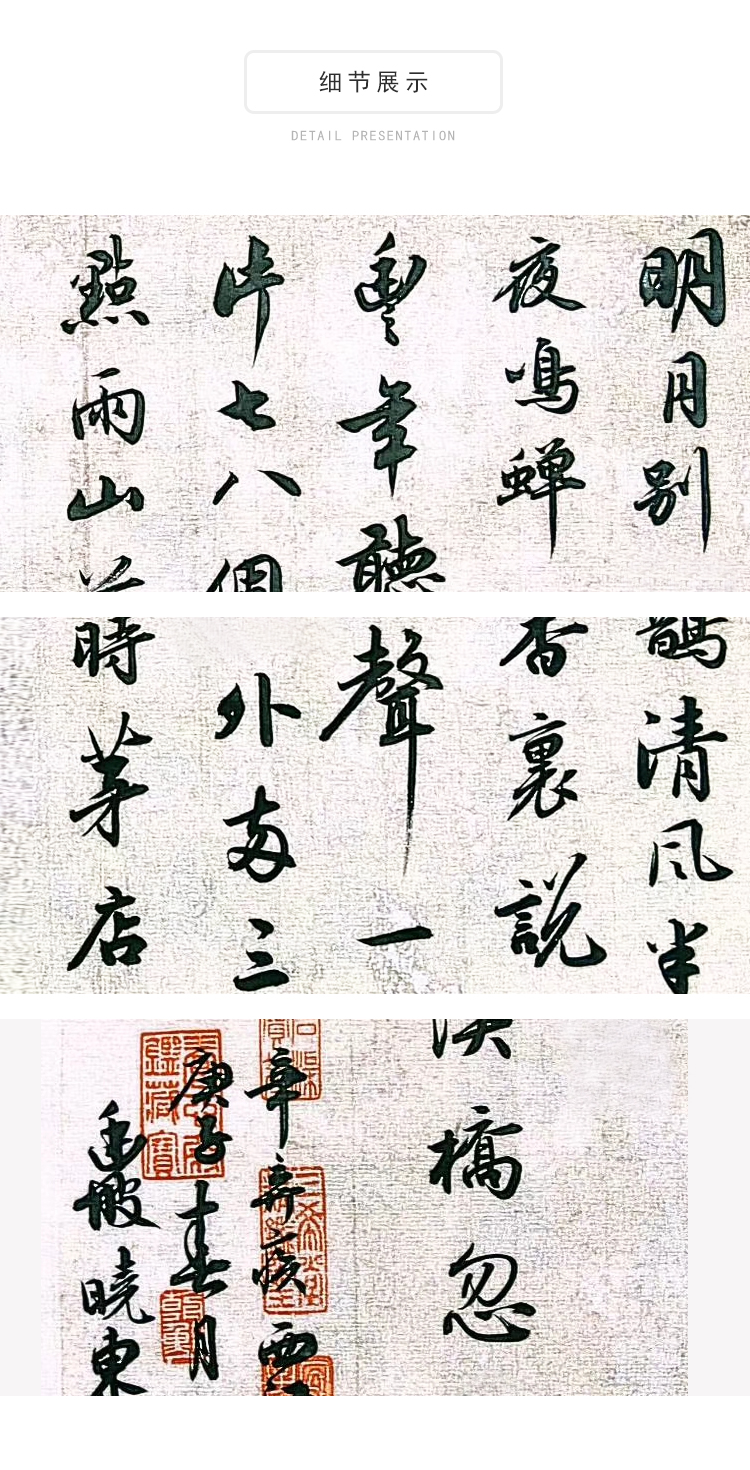 细节展示
DETAIL PRESENTATION
明月别
夜鳴蟬
豐年聽
片七八個
點雨山
鵲清風半
香裏説
聲一
外兩三
時茅店
溪橋忽
辛弃疾西江
庚子春月
曉東